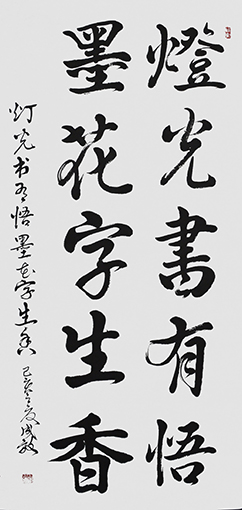 燈光書有悟
墨花字生香
灯光书有悟墨花字生香 己亥之夏